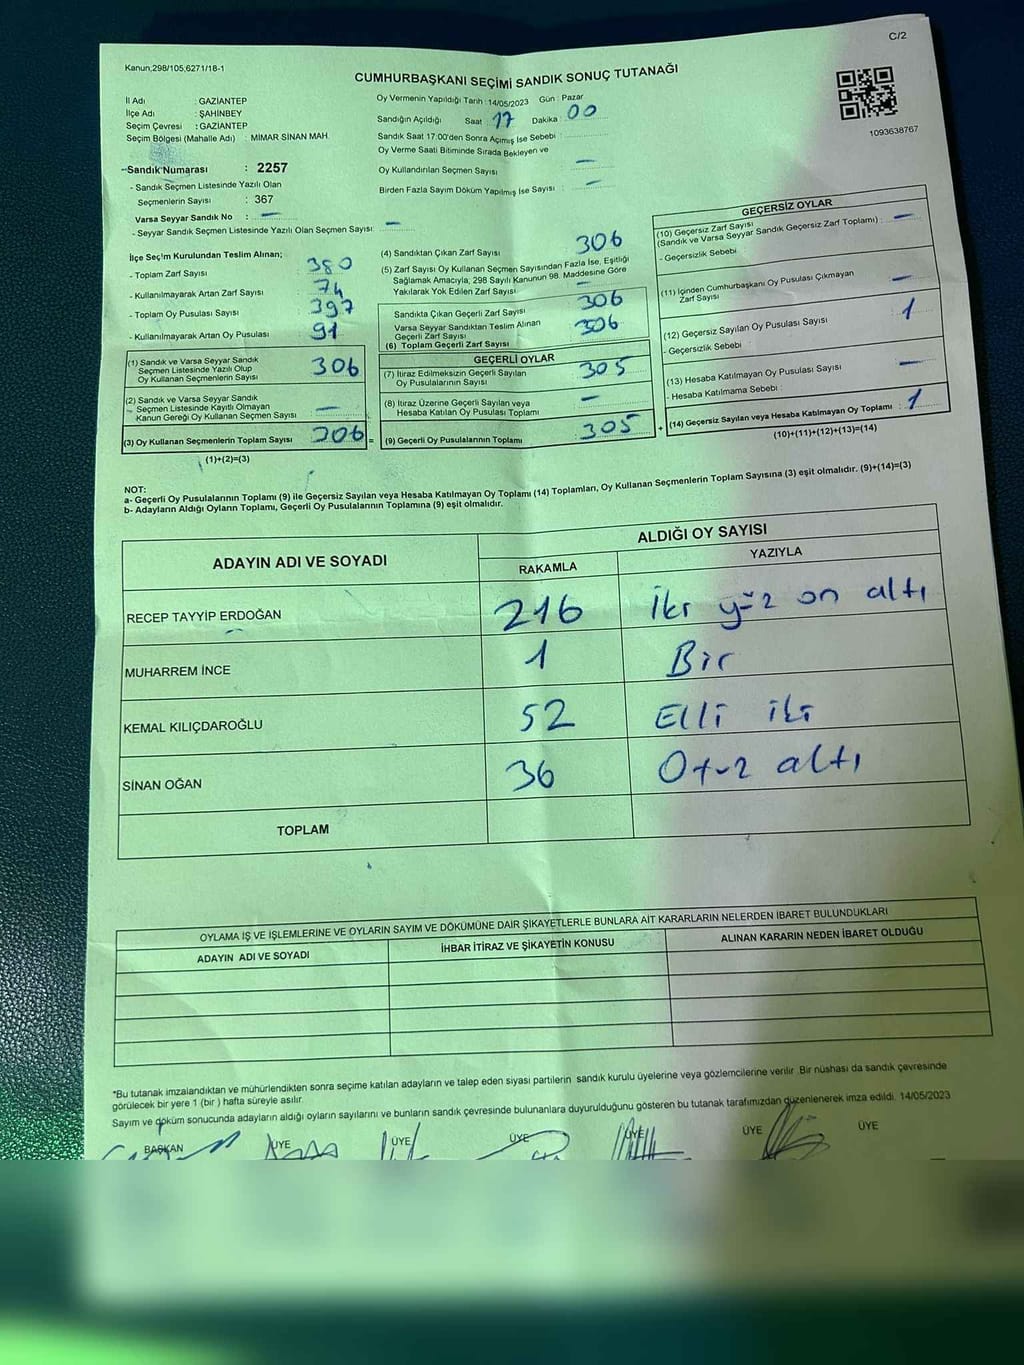 C/2
Kanun,298/105;6271/18-1
CUMHURBAŞKANI SEÇİMİ SANDIK SONUÇ TUTANAĞI
1093638767
İl Adı : GAZİANTEP
İlçe Adı : ŞAHİNBEY
Seçim Çevresi : GAZİANTEP
Seçim Bölgesi (Mahalle Adı) : MİMAR SİNAN MAH.
Sandık Numarası : 2257
- Sandık Seçmen Listesinde Yazılı Olan
Seçmenlerin Sayısı : 367
Varsa Seyyar Sandık No : –
- Seyyar Sandık Seçmen Listesinde Yazılı Olan Seçmen Sayısı: –
Oy Vermenin Yapıldığı Tarih : 14/05/2023 Gün : Pazar
Sandığın Açıldığı Saat : 17 Dakika : 00
Sandık Saat 17:00'den Sonra Açımış İse Sebebi :
Oy Verme Saati Bitiminde Sırada Bekleyen ve
Oy Kullandırılan Seçmen Sayısı : –
Birden Fazla Sayım Döküm Yapılmış İse Sayısı : –
İlçe Seçim Kurulundan Teslim Alınan;
- Toplam Zarf Sayısı : 380
- Kullanılmayarak Artan Zarf Sayısı : 74
- Toplam Oy Pusulası Sayısı : 397
- Kullanılmayarak Artan Oy Pusulası : 91
(1) Sandık ve Varsa Seyyar Sandık
Seçmen Listesinde Yazılı Olup
Oy Kullanan Seçmenlerin Sayısı 306
(2) Sandık ve Varsa Seyyar Sandık
Seçmen Listesinde Kayıtlı Olmayan
Kanun Gereği Oy Kullanan Seçmen Sayısı –
(3) Oy Kullanan Seçmenlerin Toplam Sayısı 306 =
(1)+(2)=(3)
(4) Sandıktan Çıkan Zarf Sayısı 306
(5) Zarf Sayısı Oy Kullanan Seçmen Sayısından Fazla İse, Eşitliği
Sağlamak Amacıyla, 298 Sayılı Kanunun 98. Maddesine Göre
Yakılarak Yok Edilen Zarf Sayısı –
Sandıkta Çıkan Geçerli Zarf Sayısı 306
Varsa Seyyar Sandıktan Teslim Alınan
Geçerli Zarf Sayısı
(6) Toplam Geçerli Zarf Sayısı 306
GEÇERLİ OYLAR
(7) İtiraz Edilmeksizin Geçerli Sayılan
Oy Pusulalarının Sayısı 305
(8) İtiraz Üzerine Geçerli Sayılan veya
Hesaba Katılan Oy Pusulası Toplamı –
(9) Geçerli Oy Pusulalarının Toplamı 305 +
GEÇERSİZ OYLAR
(10) Geçersiz Zarf Sayısı
(Sandık ve Varsa Seyyar Sandık Geçersiz Zarf Toplamı) : –
- Geçersizlik Sebebi
(11) İçinden Cumhurbaşkanı Oy Pusulası Çıkmayan
Zarf Sayısı –
(12) Geçersiz Sayılan Oy Pusulası Sayısı 1
- Geçersizlik Sebebi
(13) Hesaba Katılmayan Oy Pusulası Sayısı –
- Hesaba Katılmama Sebebi :
(14) Geçersiz Sayılan veya Hesaba Katılmayan Oy Toplamı : 1
(10)+(11)+(12)+(13)=(14)
NOT:
a- Geçerli Oy Pusulalarının Toplamı (9) ile Geçersiz Sayılan veya Hesaba Katılmayan Oy Toplamı (14) Toplamları, Oy Kullanan Seçmenlerin Toplam Sayısına (3) eşit olmalıdır. (9)+(14)=(3)
b- Adayların Aldığı Oyların Toplamı, Geçerli Oy Pusulalarının Toplamına (9) eşit olmalıdır.
ADAYIN ADI VE SOYADI ALDIĞI OY SAYISI
RAKAMLA YAZIYLA
RECEP TAYYİP ERDOĞAN 216 İki yüz on altı
MUHARREM İNCE 1 Bir
KEMAL KILIÇDAROĞLU 52 Elli iki
SİNAN OĞAN 36 Otuz altı
TOPLAM
OYLAMA İŞ VE İŞLEMLERİNE VE OYLARIN SAYIM VE DÖKÜMÜNE DAİR ŞİKAYETLERLE BUNLARA AİT KARARLARIN NELERDEN İBARET BULUNDUKLARI
ADAYIN ADI VE SOYADI İHBAR İTİRAZ VE ŞİKAYETİN KONUSU ALINAN KARARIN NEDEN İBARET OLDUĞU
*Bu tutanak imzalandıktan ve mühürlendikten sonra seçime katılan adayların ve talep eden siyasi partilerin sandık kurulu üyelerine veya gözlemcilerine verilir. Bir nüshası da sandık çevresinde
görülecek bir yere 1 (bir ) hafta süreyle asılır.
Sayım ve döküm sonucunda adayların aldığı oyların sayılarını ve bunların sandık çevresinde bulunanlara duyurulduğunu gösteren bu tutanak tarafımızdan düzenlenerek imza edildi. 14/05/2023
BAŞKAN ÜYE ÜYE ÜYE ÜYE ÜYE ÜYE